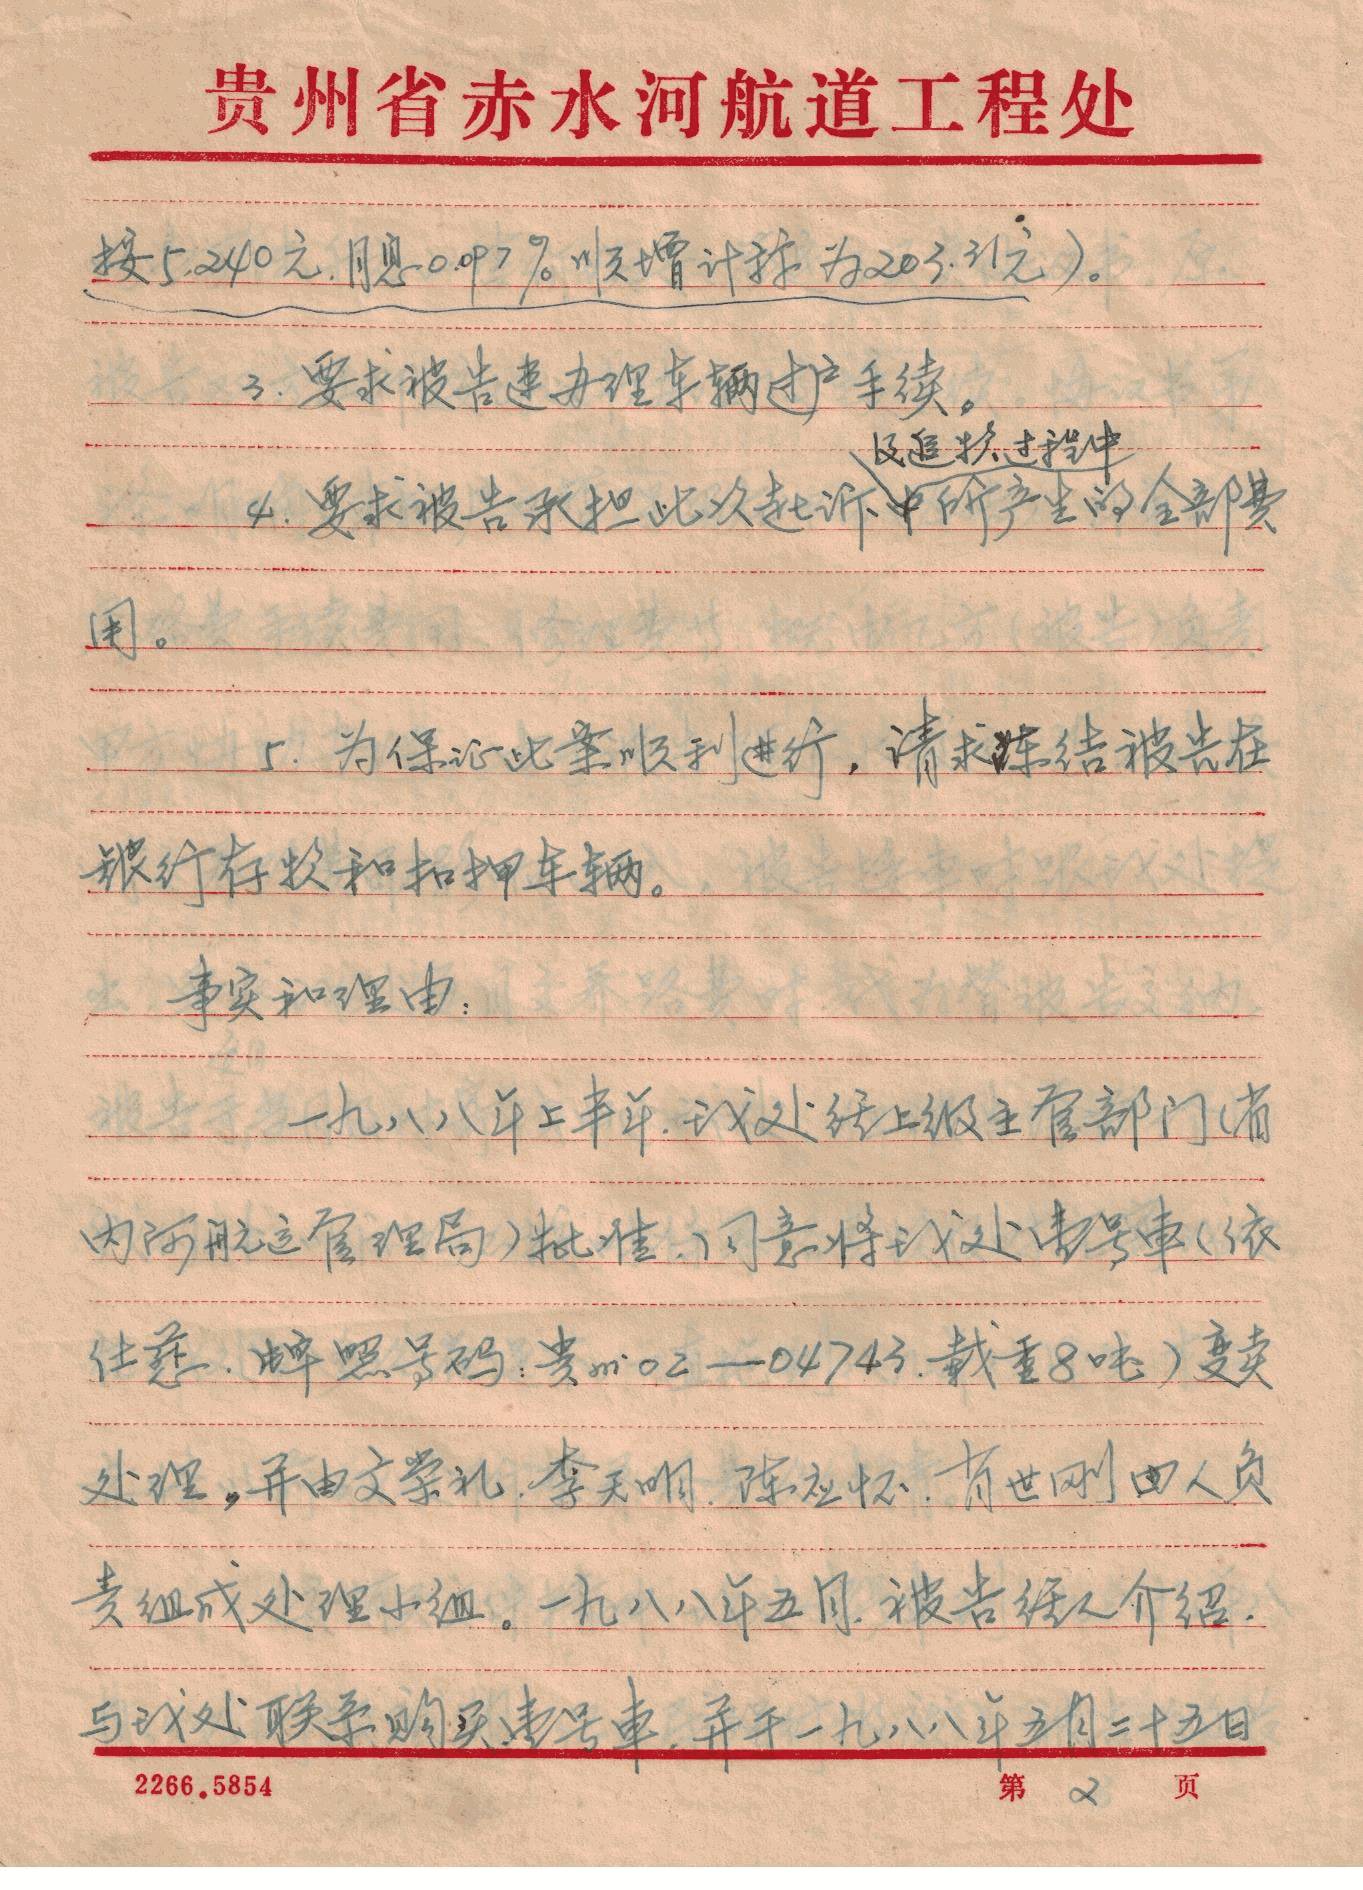 贵州省赤水河航道工程处
按5.240元.月息0.097%顺增计称为203.31元)。
3.要求被告速办理车辆过户手续。
及追款过程中
4.要求被告承担此次起诉中所产生的全部费
用。
5.为保证此案顺利进行,请求冻结被告在
银行存款和扣押车辆。
事实和理由:
一九八八年上半年.我处经上级主管部门(省
内河航运管理局)批准.同意将我处壹号车(依
仕兹.牌照号码:贵 02—04743.载重8吨)变卖
处理,并由文荣礼.李天明.陈应怀.肖世刚四人负
责组成处理小组。一九八八年五月.被告经人介绍.
与我处联系购买壹号车.并于一九八八年五月二十五日
2266.5854 第2页